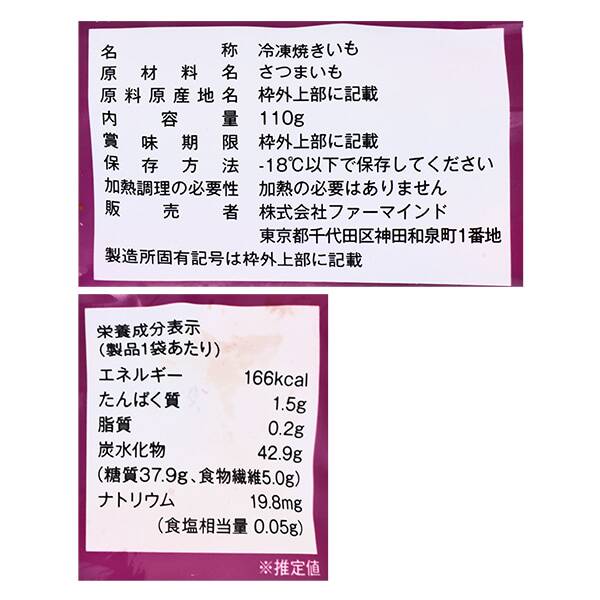 名称 冷凍焼きいも
原材料名 さつまいも
原料原産地名 枠外上部に記載
内容量 110g
賞味期限 枠外上部に記載
保存方法 -18℃以下で保存してください
加熱調理の必要性 加熱の必要はありません
販売者 株式会社ファーマインド
東京都千代田区神田和泉町1番地
製造所固有記号は枠外上部に記載
栄養成分表示
(製品1袋あたり)
エネルギー 166kcal
たんぱく質 1.5g
脂質 0.2g
炭水化物 42.9g
(糖質37.9g、食物繊維5.0g)
ナトリウム 19.8mg
(食塩相当量 0.05g)
※推定値